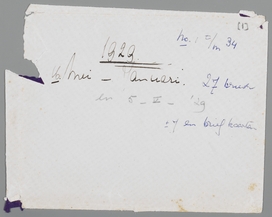 [1]
No: 0/m 34
1929
Mei - Januari. 27 brieven
en 5 - II - '29
27 en briefkaarten